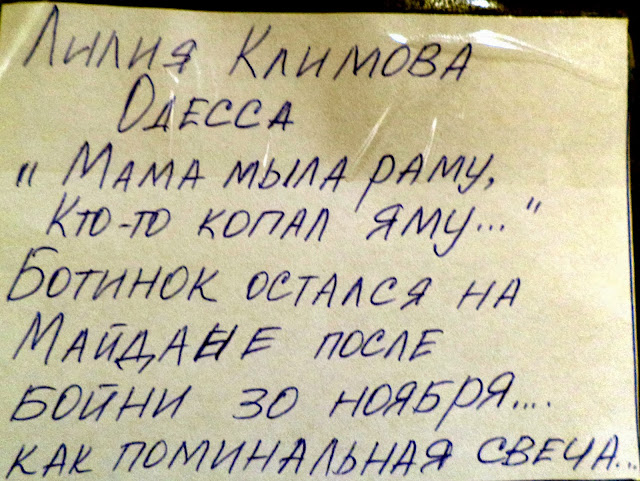 Лилия Климова
Одесса
"Мама мыла раму,
Кто-то копал яму..."
Ботинок остался на
Майдане после
бойни 30 ноября....
как поминальная свеча...